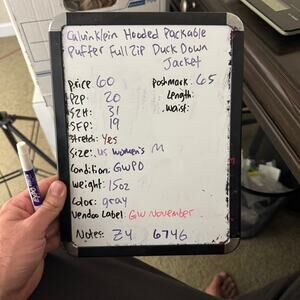 Calvin Klein Hooded Packable
Puffer Full Zip Duck Down
Jacket
price: 60 poshmark: 65
P2P 20 Length:
S2H: 31 Waist:
SFP: 19
Stretch: Yes
Size: US Women's M
Condition: GWPO
Weight: 15oz
Color: gray
Vendoo Label: GW November
Notes: Z4 6746